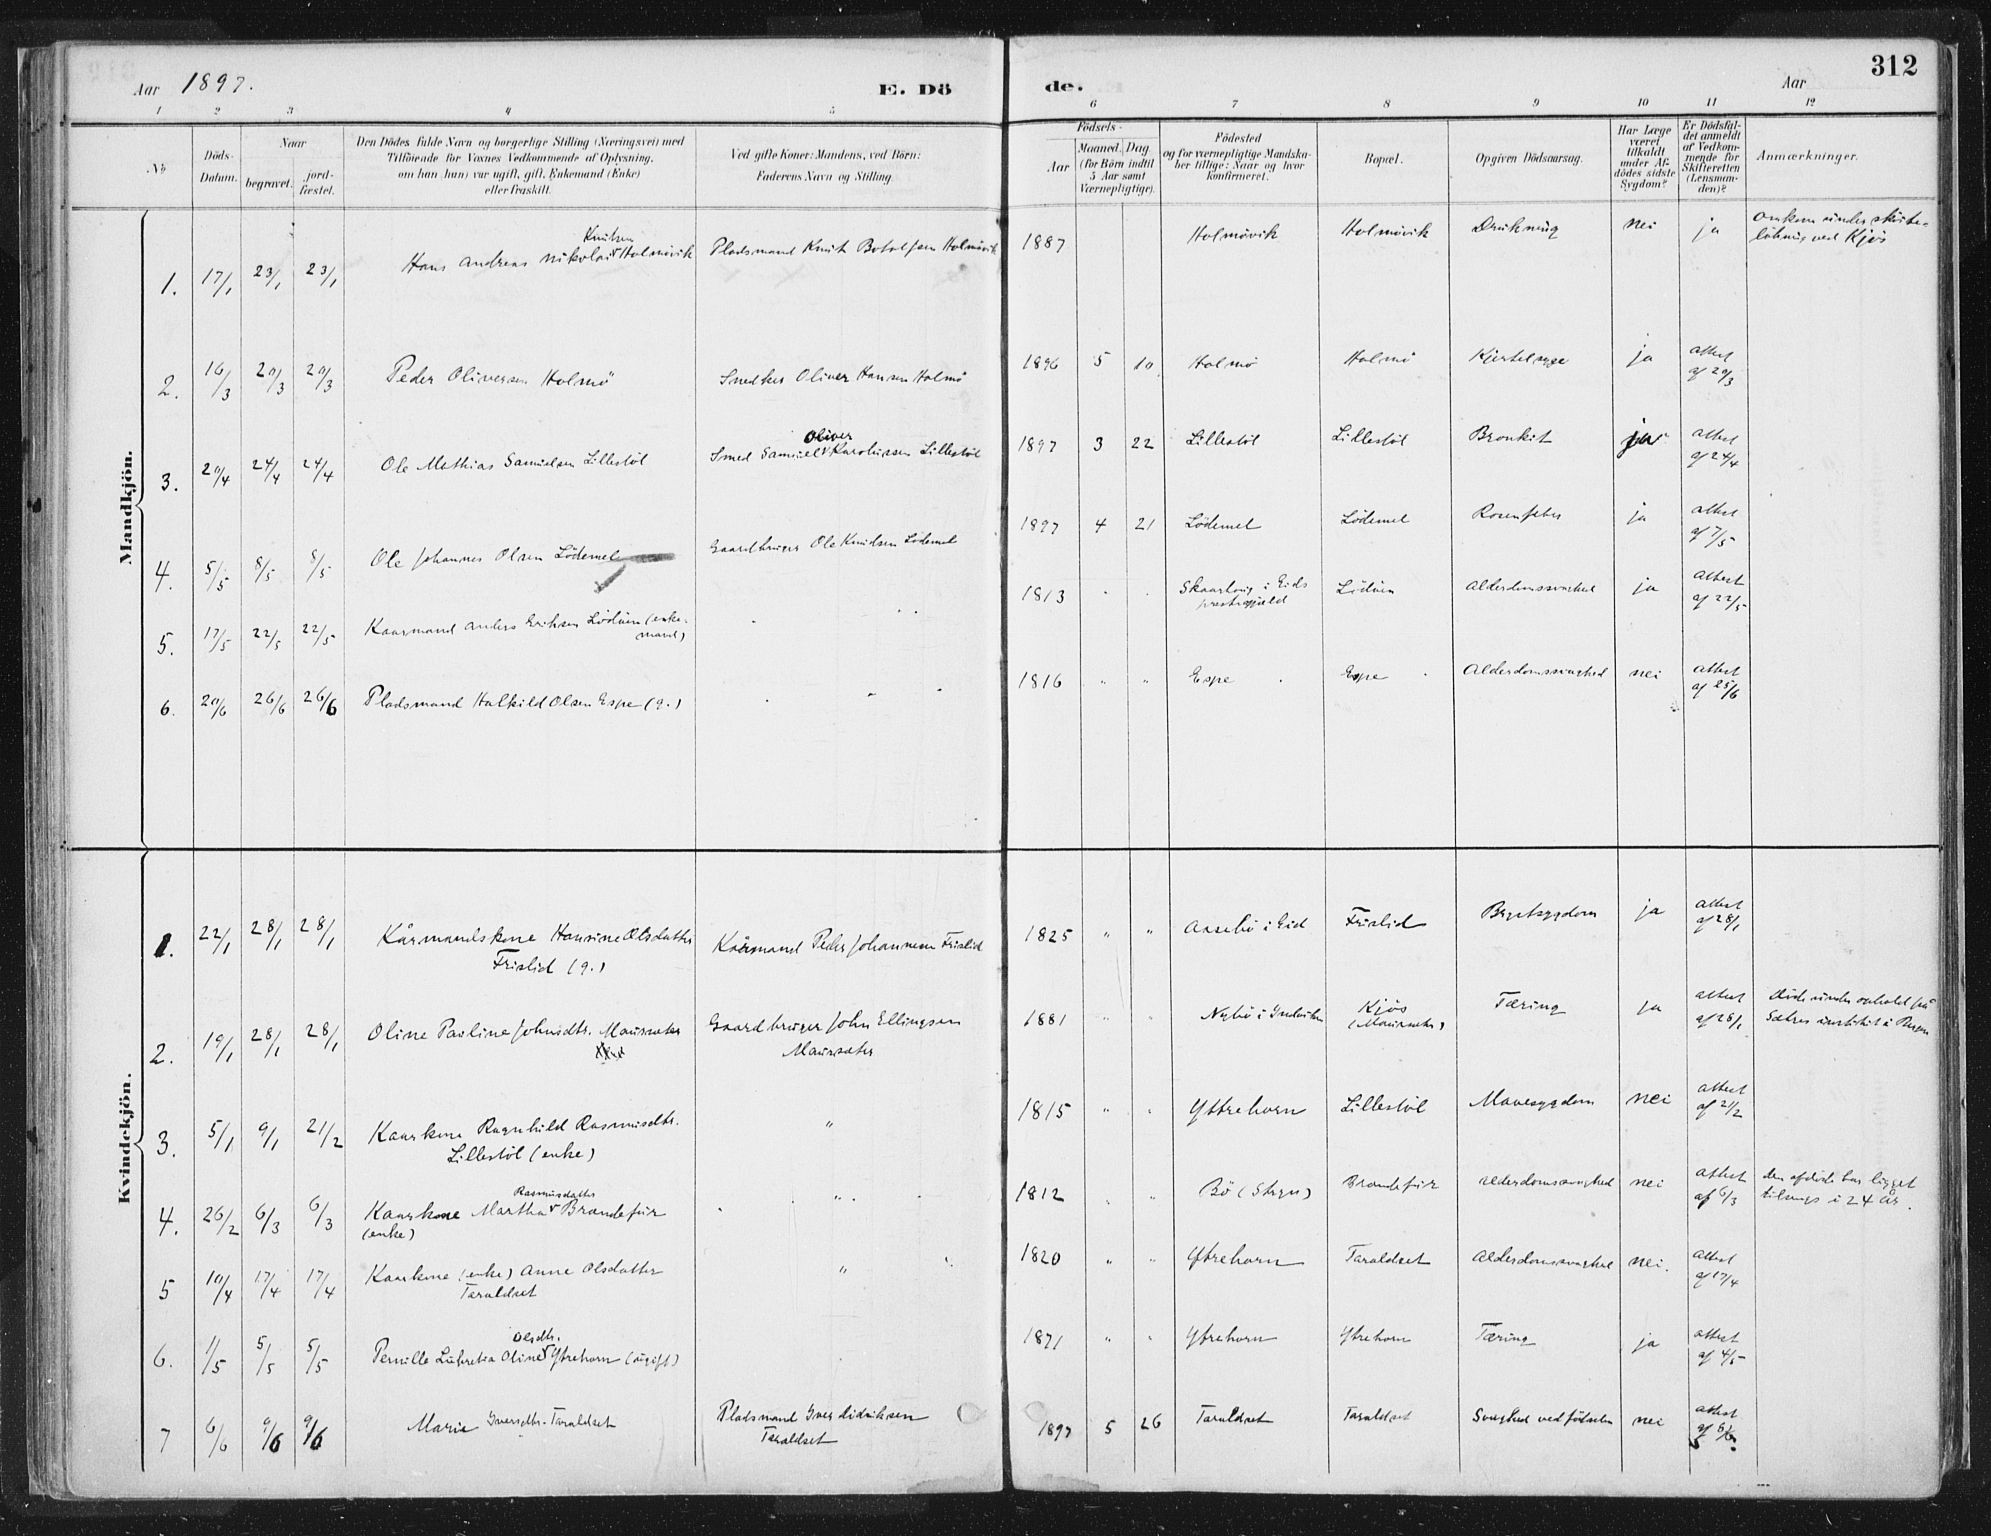 312
Aar 1897.
E. Dö
de.
Aar
1 2 3 4 5 6 7 8 9 10 11 12
No
Döds-
Datum.
Naar
begravet.
jord-
fæstet.
Den Dödes fulde Navn og borgerlige Stilling (Næringsvei) med
Tilföiende for Voxnes Vedkommende af Oplysning,
om han (hun) var ugift, gift, Enkemand (Enke)
eller fraskilt.
Ved gifte Koner: Mandens, ved Börn:
Faderens Navn og Stilling.
Födsels-
Aar
Maaned. Dag
(for Börn indtil
5 Aar samt
Værnepligtige).
Födested
og for værnepligtige Mandska-
ber tillige: Naar og hvor
konfirmeret.
Bopæl.
Opgiven Dödsaarsag.
Har Læge
været
tilkaldt
under Af-
dödes sidste
Sygdom?
Er Dödsfal-
det anmeldt
af Vedkom-
mende for
Skifteretten
(Lensman-
den)?
Anmærkninger.
Mandkjön.
1. 17/1 23/1 23/1 Hans Andreas Nikolai Knutsen Holmövik Pladsmand Knut Botolfsen Holmövik 1887 Holmövik Holmövik Drukning nei ja omkom under skøite-
løbning ved Kjøs
2. 16/3 20/3 20/3 Peder Oliversen Holmö Snedker Oliver Hansen Holmö 1896 5 10 Holmö Holmö Kjertelsyge ja attest
af 20/3
3. 20/4 24/4 24/4 Ole Mathias Samuelsen Lillestöl Smed Samuel Oliver Karolussen Lillestöl 1897 3 22 Lillestöl Lillestöl Bronkit ja attest
af 24/4
4. 5/5 8/5 8/5 Ole Johannes Olsen Lödemel Gaardbruger Ole Knudsen Lödemel 1897 4 21 Lödemel Lödemel Rosenfeber ja attest
af 7/5
5. 17/5 22/5 22/5 Kaarmand Anders Eriksen Lödöen (enke-
mand) 1813 i Eids
prestegjæld Lödöen Alderdomssvaghed ja attest
af 22/5
6. 20/6 26/6 26/6 Pladsmand Halkild Olsen Espe (g.) 1816 " " Espe Espe Alderdomssvaghed nei attest
af 25/6
Kvindekjön.
1. 22/1 28/1 28/1 Kårmandskone Hansine Olsdatter
Frislid (g.) Kårmand Peder Johannesen Frislid 1825 " " Aasebö i Eid Frislid Brystsygdom ja attest
af 28/1
2. 19/1 28/1 28/1 Oline Pauline Johnsdtr. Maursæter Gaardbruger John Ellingsen
Maursæter 1881 " " Nybö i Indviken Kjös
(Maursæter) Tæring ja attest
af 28/1 döde under ophold på
Sætres institut i Bergen
3. 5/1 9/1 21/2 Kaarkone Ragnhild Rasmusdtr.
Lillestöl (enke) " 1815 " " Yttrehorn Lillestöl Mavesygdom nei attest
af 21/2
4. 26/2 6/3 6/3 Kaarkone Martha Rasmusdatter Brandefur
(enke) " 1812 " " Bö (Stryn) Brandefur Alderdomssvaghed nei attest
af 6/3 den afdöde har ligget
tilsengs i 24 år.
5 10/4 17/4 17/4 Kaarkone (enke) Anne Olsdatter
Taraldset " 1820 " " Ytrehorn Taraldset Alderdomssvaghed nei. attest
af 17/4
6. 1/5 5/5 5/5 Pernille Lukretia Oline Olsdtr. Ytrehorn (ugift) 1871 " " Ytrehorn Ytrehorn Tæring ja attest
af 4/5
7 6/6 9/6 9/6 Marie Iversdtr. Taraldset Pladsmand Iver Didriksen
Taraldset 1897 5 26 Taraldset Taraldset Svaghed ved födselen nei attest
af 6/6